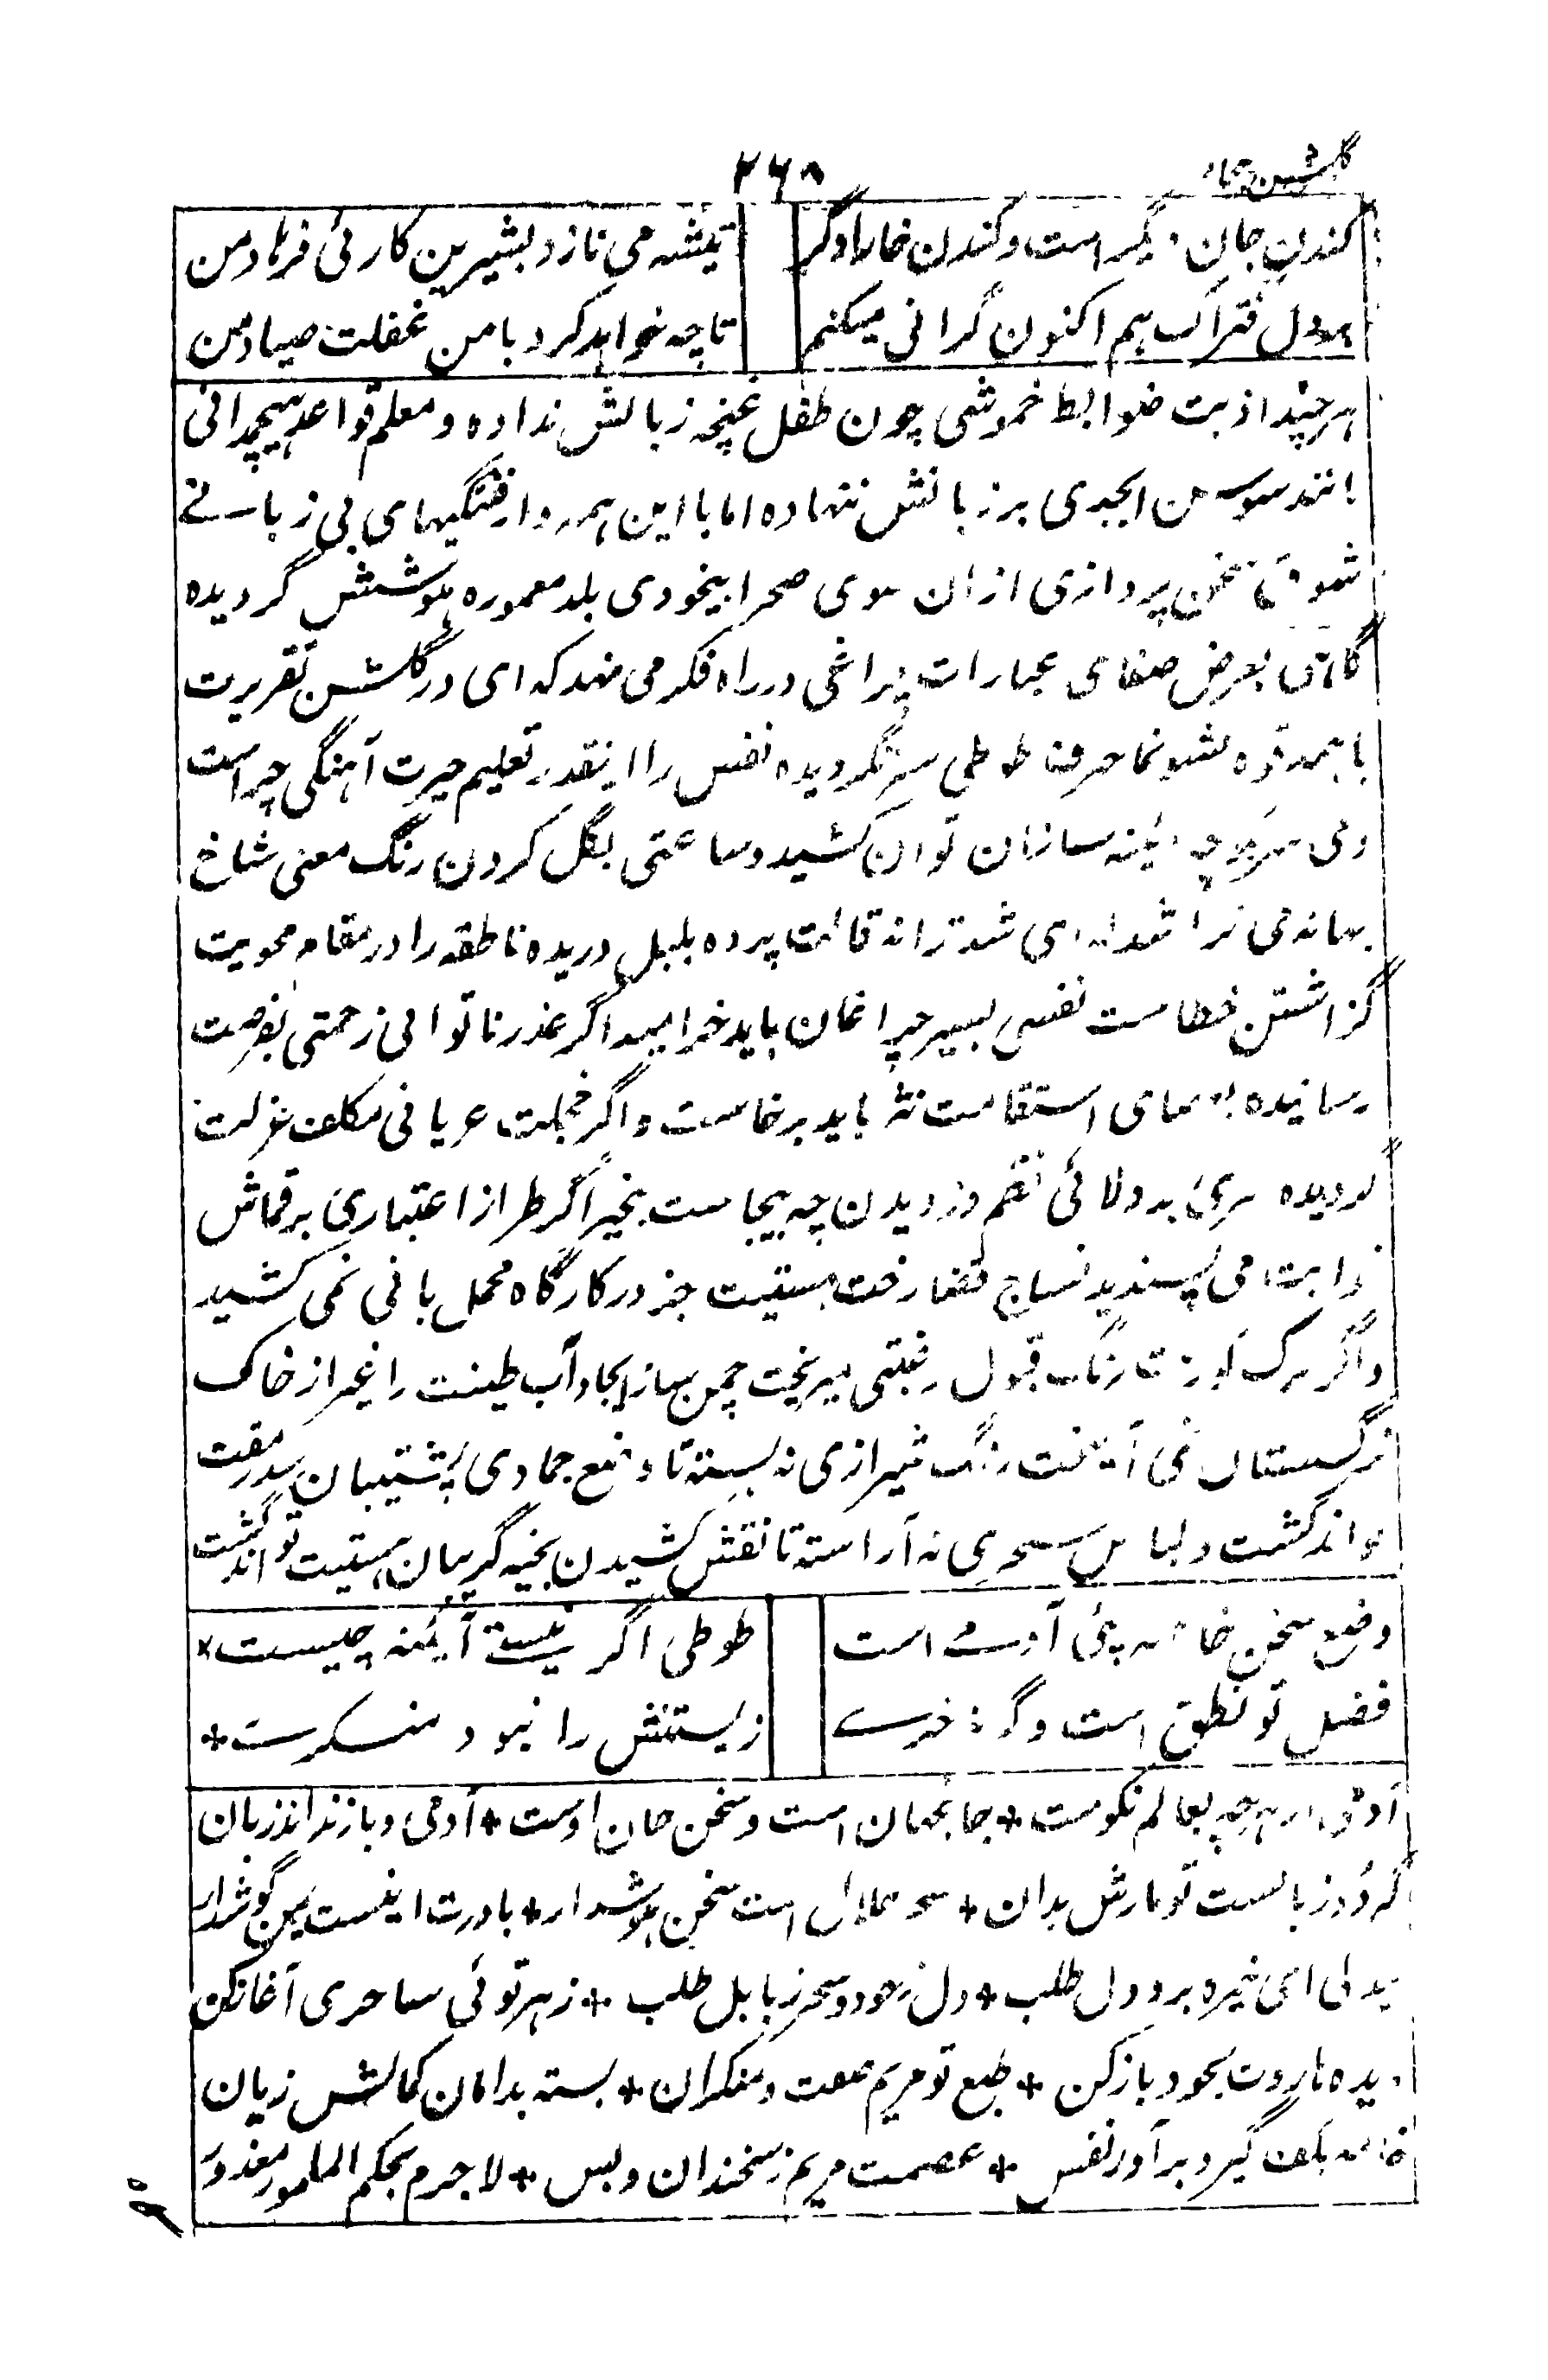 ۲۶۸
کندن جان دیگر است و کندن خارا دگر
تیشه می نازد بشیرین کارئی فرهاد من
بردل فتراک هم اکنون گرانی میکنم
تا چه خواهد کرد با من غفلت صیاد من
هرچند ادبت ضوابط خموشی چون طفل غنچه زبانش نداده و معلم قواعد هیچمدانی
مانند سوسن ابجدی بر زبانش ننهاده اما با این همه وارفتگیهای بی زبانے
شوق سخن پردازی ازان سوی صحرا بیخودی بلد معموره هوشش گردیده
گاهی بعرض صفای عبارات چراغی در راه فکر می نهد که ای در گلشن تقریرت
با همه قوه نشو نما حرفت طوطی سر نگردیده نفس را اینقدر تعلیم حیرت آهنگی چراست
دمی سر بوجه آئینه سازان توان کشید و ساعتی بگل کردن رنگ معنی شاخ
بهانه می تراشد ترانه قائلت پرده بلبل دریده ناطقه را در مقام محویت
گزاشتن خطاست نفسی بسیر چراغان باید خرامید اگر عذر ناتوانی زحمتی بفرصت
رسانیده عصای استقامت نه باید برخاست و اگر خجلت عریانی مکلف عزلت
گردیده سری بدولائی نظم دزدیدن چه بیجاست بخیر اگر طراز اعتباری بر قماش
می پسندید نساج قضا رخت هستیت جز در کارگاه محمل بافی نمی کشید
و اگر برگ رنگ قبول رغبتی میریخت چمن بهار ایجاد آب طینت را غیر از خاک
نرگستان نمی آمیخت رنگ شیرازی نه بسته تا وضع جمادی پشتیبان پیدر مفت
تواند گشت و لباس سحری نه آراسته تا نقش کشیدن بخیه گریبان هستیت تواند گشت
وضع سخن خاصه پئی آدمی است
طوطی اگر نیستے آئینه چیست
فضل تو نطق است وگرنه خرے
زیستنش را نبود منکرست
آدمی از هرچه بعالم نکوست + جا بجهان است و سخن جان اوست + آدمی و باز نداند زبان
گر دوزبانست تو مارش بدان + سحر حلال است سخن هوشدار + بادرت اینست ببین گوشدار
بیدلی ای خیره برو دل طلب + دل ز خود و سحر ز بابل طلب + زهر توئی ساحری آغاز کن
دیده هاروت بخود باز کن + طبع تو مریم صفت و منکران + بسته بدامان کمالش زیان
خامه بکف گیر و برآور نفس + عصمت مریم ز سخندان و بس + لاجرم بحکم المامور معذور